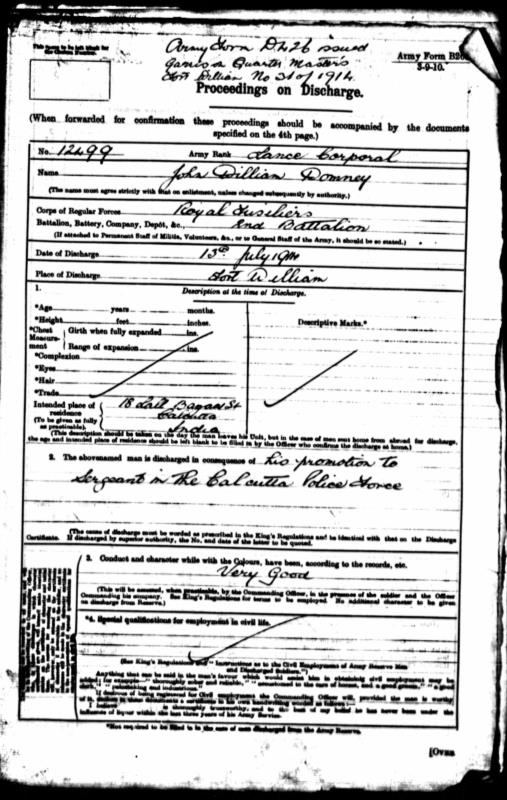 This form to be left blank for
the Chelsea Number.
Army Form D426 issued
Garrison Quarter Masters
Fort William No 31 of 1914.
Army Form B26
3-9-10.
Proceedings on Discharge.
(When forwarded for confirmation these proceedings should be accompanied by the documents
specified on the 4th page.)
No. 12499 Army Rank Lance Corporal
Name John William Domney
(The name must agree strictly with that on enlistment, unless changed subsequently by authority.)
Corps of Regular Forces Royal Fusiliers
Battalion, Battery, Company, Depôt, &c., 2nd Battalion
(If attached to Permanent Staff of Militia, Volunteers, &c., or to General Staff of the Army, it should be so stated.)
Date of Discharge 13th July 1914
Place of Discharge Fort William
1. Description at the time of Discharge.
*Age years months.
*Height feet inches.
*Chest Measure-ment
Girth when fully expanded ins.
Range of expansion ins.
*Complexion
*Eyes
*Hair
*Trade
Descriptive Marks.*
Intended place of residence
(To be given as fully as practicable).
18 Lall Bazaar St
Calcutta
India
(This description should be taken on the day the man leaves his Unit, but in the case of men sent home from abroad for discharge,
the age and intended place of residence should be left blank to be filled in by the Officer who confirms the discharge at home.)
2. The abovenamed man is discharged in consequence of his promotion to
Sergeant in the Calcutta Police Force
(The cause of discharge must be worded as prescribed in the King's Regulations and be identical with that on the Discharge
Certificate. If discharged by superior authority, the No. and date of the letter to be quoted.)
3. Conduct and character while with the Colours, have been, according to the records, etc.
Very Good
(This will be assessed, when practicable, by the Commanding Officer, in the presence of the soldier and the Officer
Commanding his company. See King's Regulations for terms to be employed. No additional character to be given
on discharge from Reserve.)
*4. Special qualifications for employment in civil life.
(See King's Regulations and "Instructions as to the Civil Employment of Army Reserve Men
and Discharged Soldiers.")
Anything that can be said in the man's favour which would assist him in obtaining civil employment may be
added; for example—"thoroughly sober and reliable," "accustomed to the care of horses, and a good groom," "a good
clerk,"
If desirous of being registered for Civil employment the Commanding Officer will, provided the man is worthy
I believe is thoroughly trustworthy, and to the best of my belief he has never been under the
influence of liquor within the last three years of his Army Service.
*Not required to be filled in in the case of men discharged from the Army Reserve.
[OVER